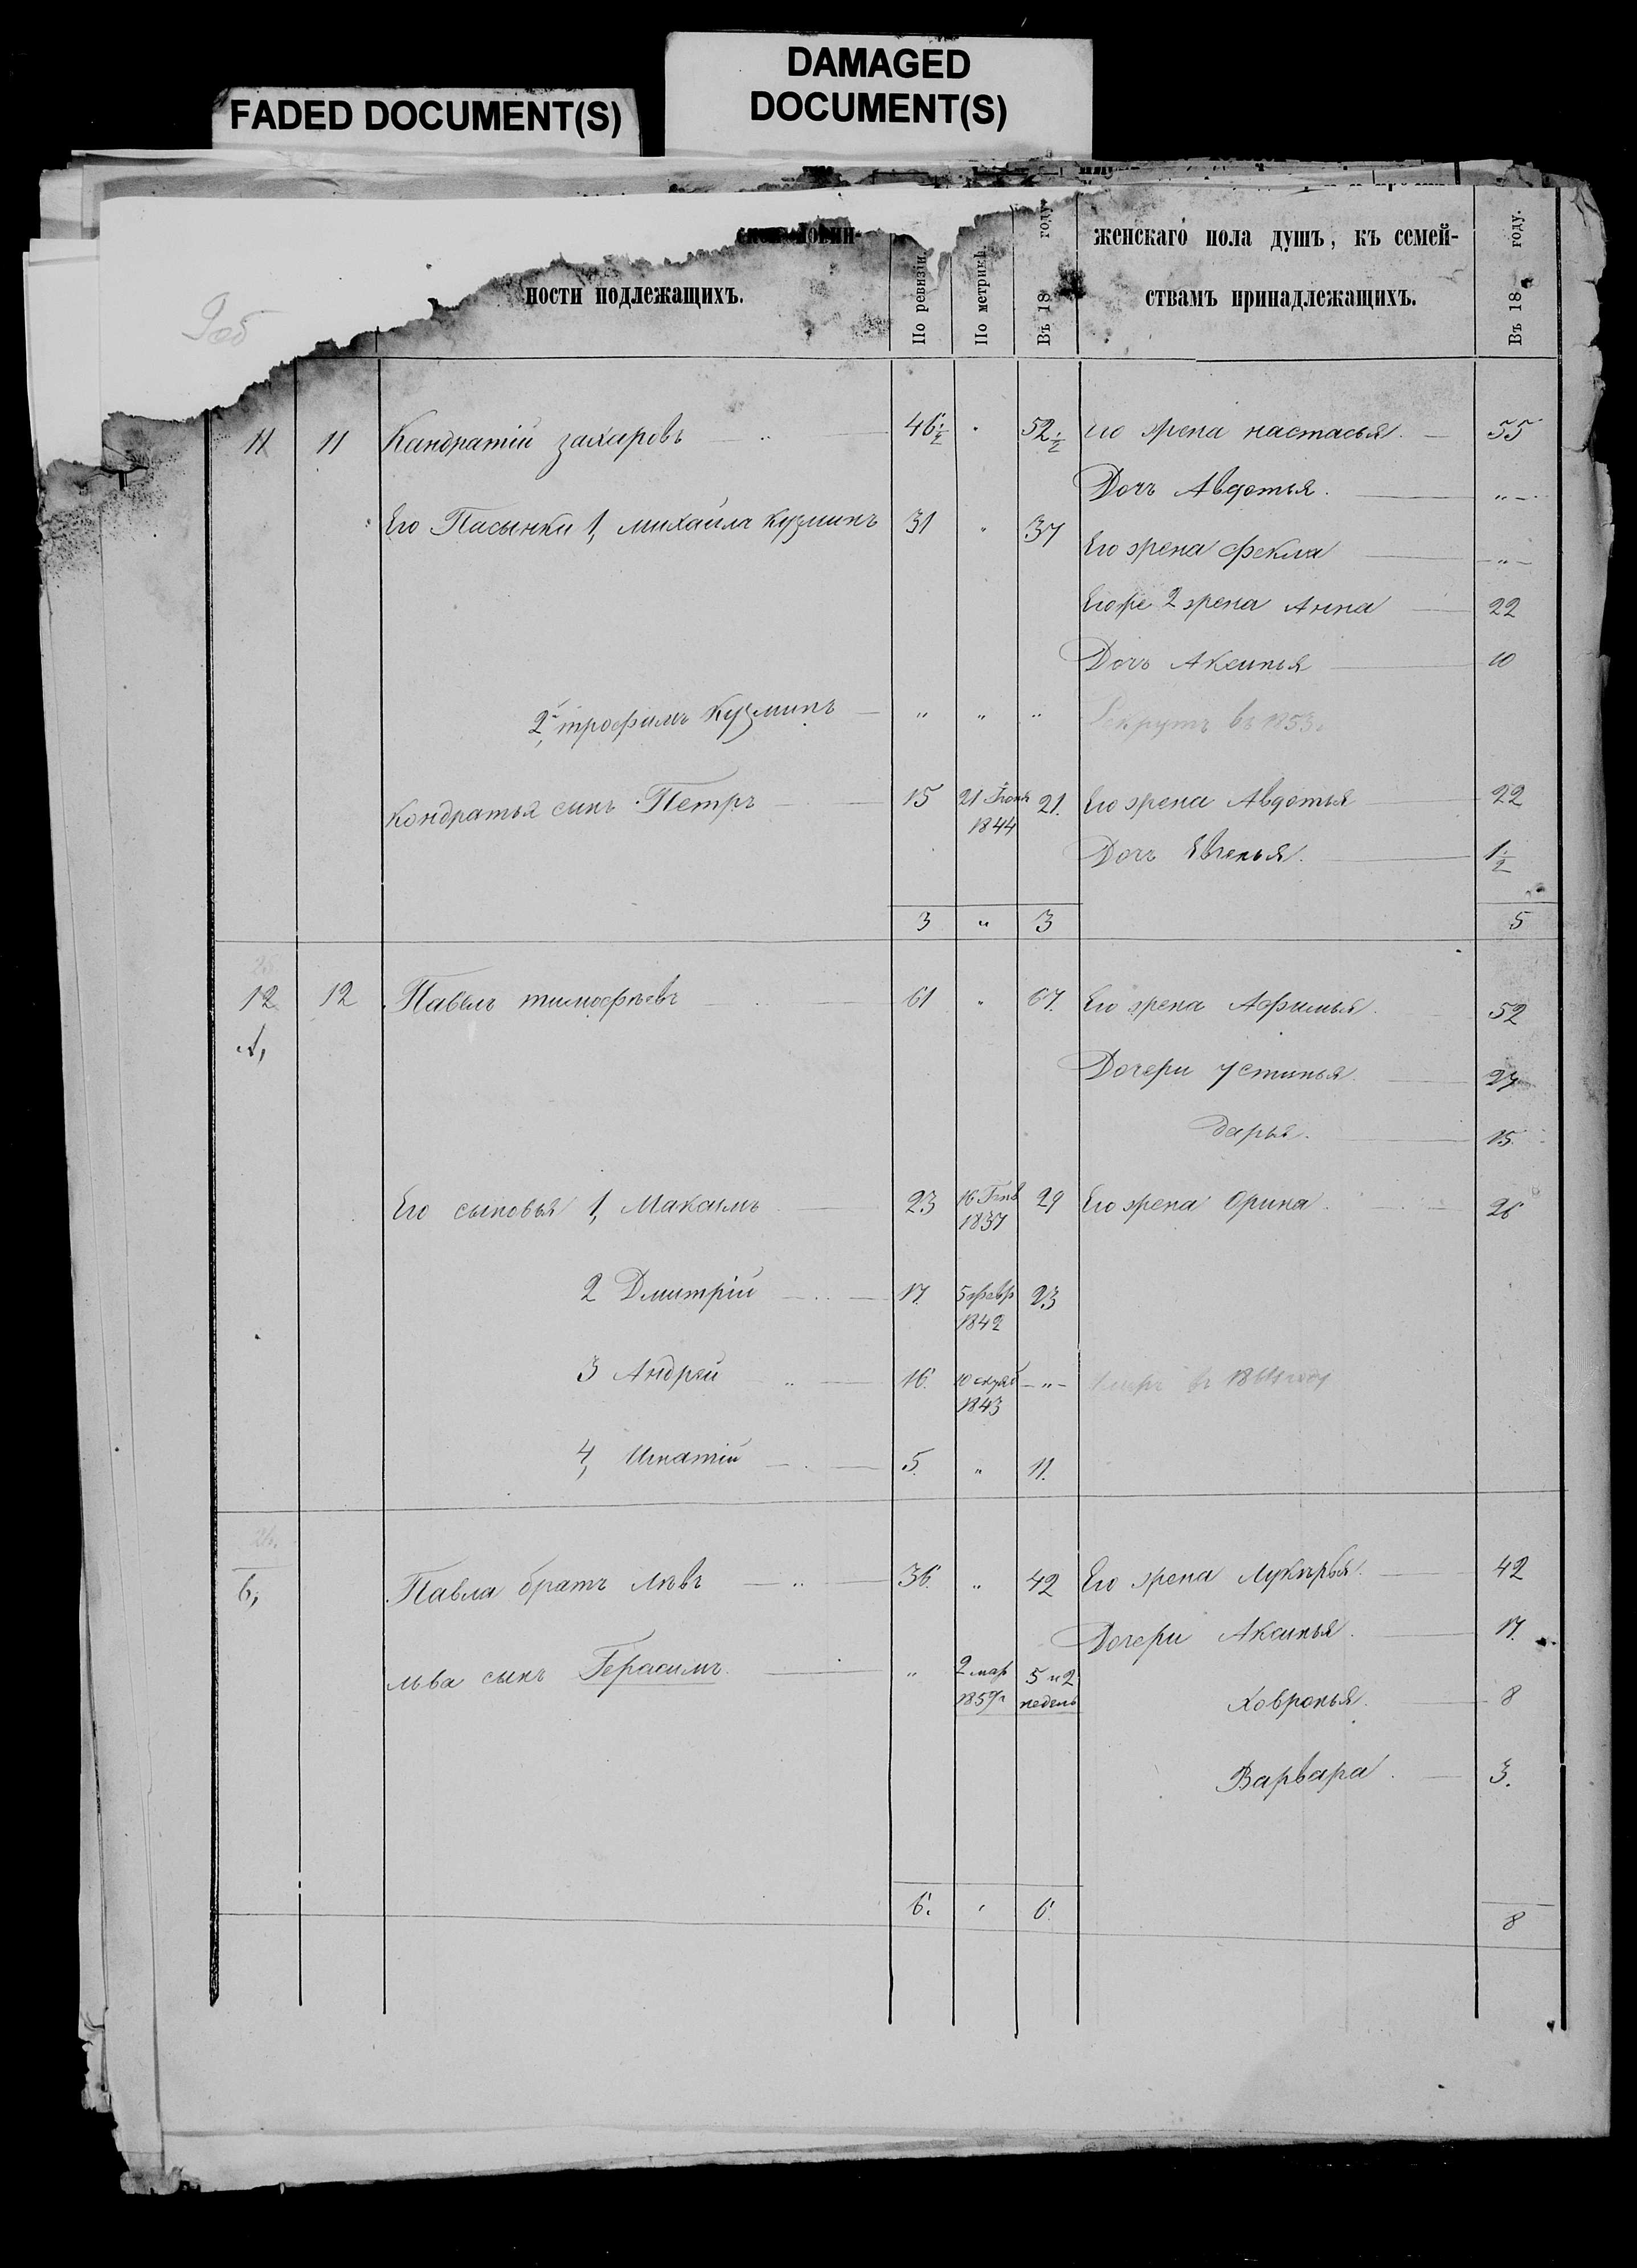 DAMAGED
DOCUMENT(S)
FADED DOCUMENT(S)
ности подлежащихъ.
По ревизіи.
По метрикѣ.
Въ 18 году.
женскаго пола душъ, къ семей-
ствамъ принадлежащихъ.
Въ 18 году.
11 11 Кандратій захаровъ — „ — 46 1/2 „ 52 1/2 его жена настасья. — 55
Дочь Авдотья. — „ —
Его Пасынки 1, михаила кузминъ 31 „ 37 Его жена фекла — „ —
Его же 2 жена Анна — 22
Дочь Аксинья — 10
2, трофимъ кузминъ — „ „ „ Рекрутъ въ 1853.
Кондратья сынъ Петръ — 15 21 Іюня 1844 21. Его жена Авдотья 22
Дочь Евгенья. — 1 1/2
3 „ 3 5
25
12 12 Павелъ тимофѣевъ — 61 „ 67. Его жена Афимья. 52
А,
Дочери устинья — 27
дарья. — 15.
Его сыновья 1, Максимъ — 23 16 Генв 1837 29 Его жена Орина. — 26
2 Дмитрій — 17. 5 февр 1842 23
3 Андрей „ — 16. 1843 — „ — въ году
4, Игнатій — 5. „ 11.
26.
б, Павла братъ Лѣвъ — „ — 36. „ 42 Его жена Лукѣрья. — 42
Дочери Аксинья. — 17.
льва сынъ Герасимъ. — „ 2 мар 1859г 5 и 2 недель Ховронья. — 8
Варвара. — 3.
6. „ 6. 8